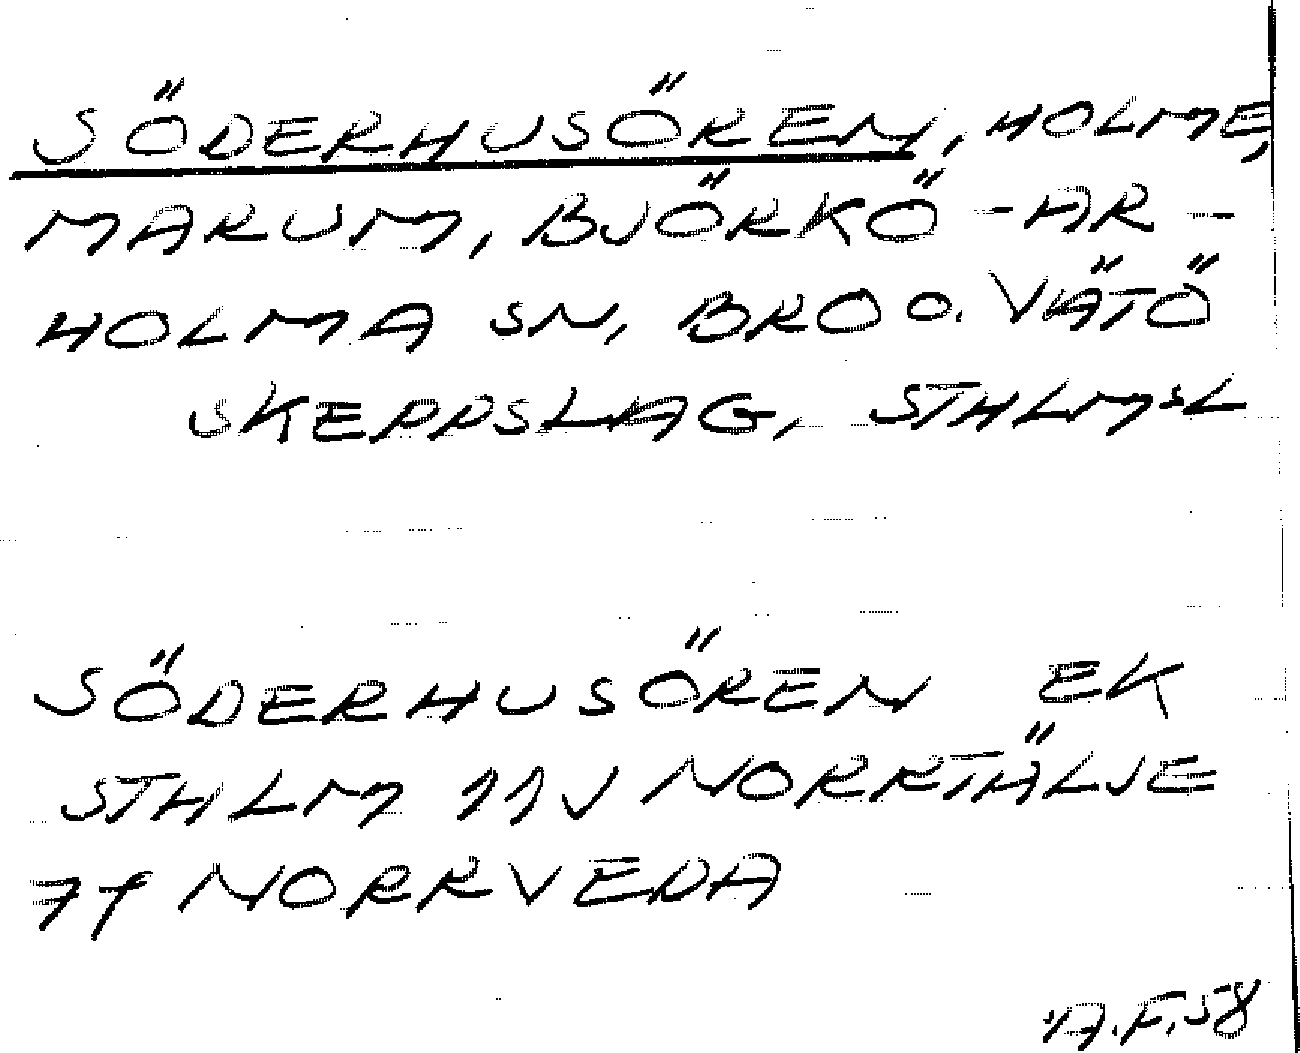 SÖDERHUSÖREN, HOLME,
MARUM, BJÖRKÖ-AR-
HOLMA SN, BRO O. VÄTÖ
SKEPPSLAG, STHLMSL
SÖDERHUSÖREN EK
STHLM 11J NORRTÄLJE
7f NORRVEDA
A.F.58